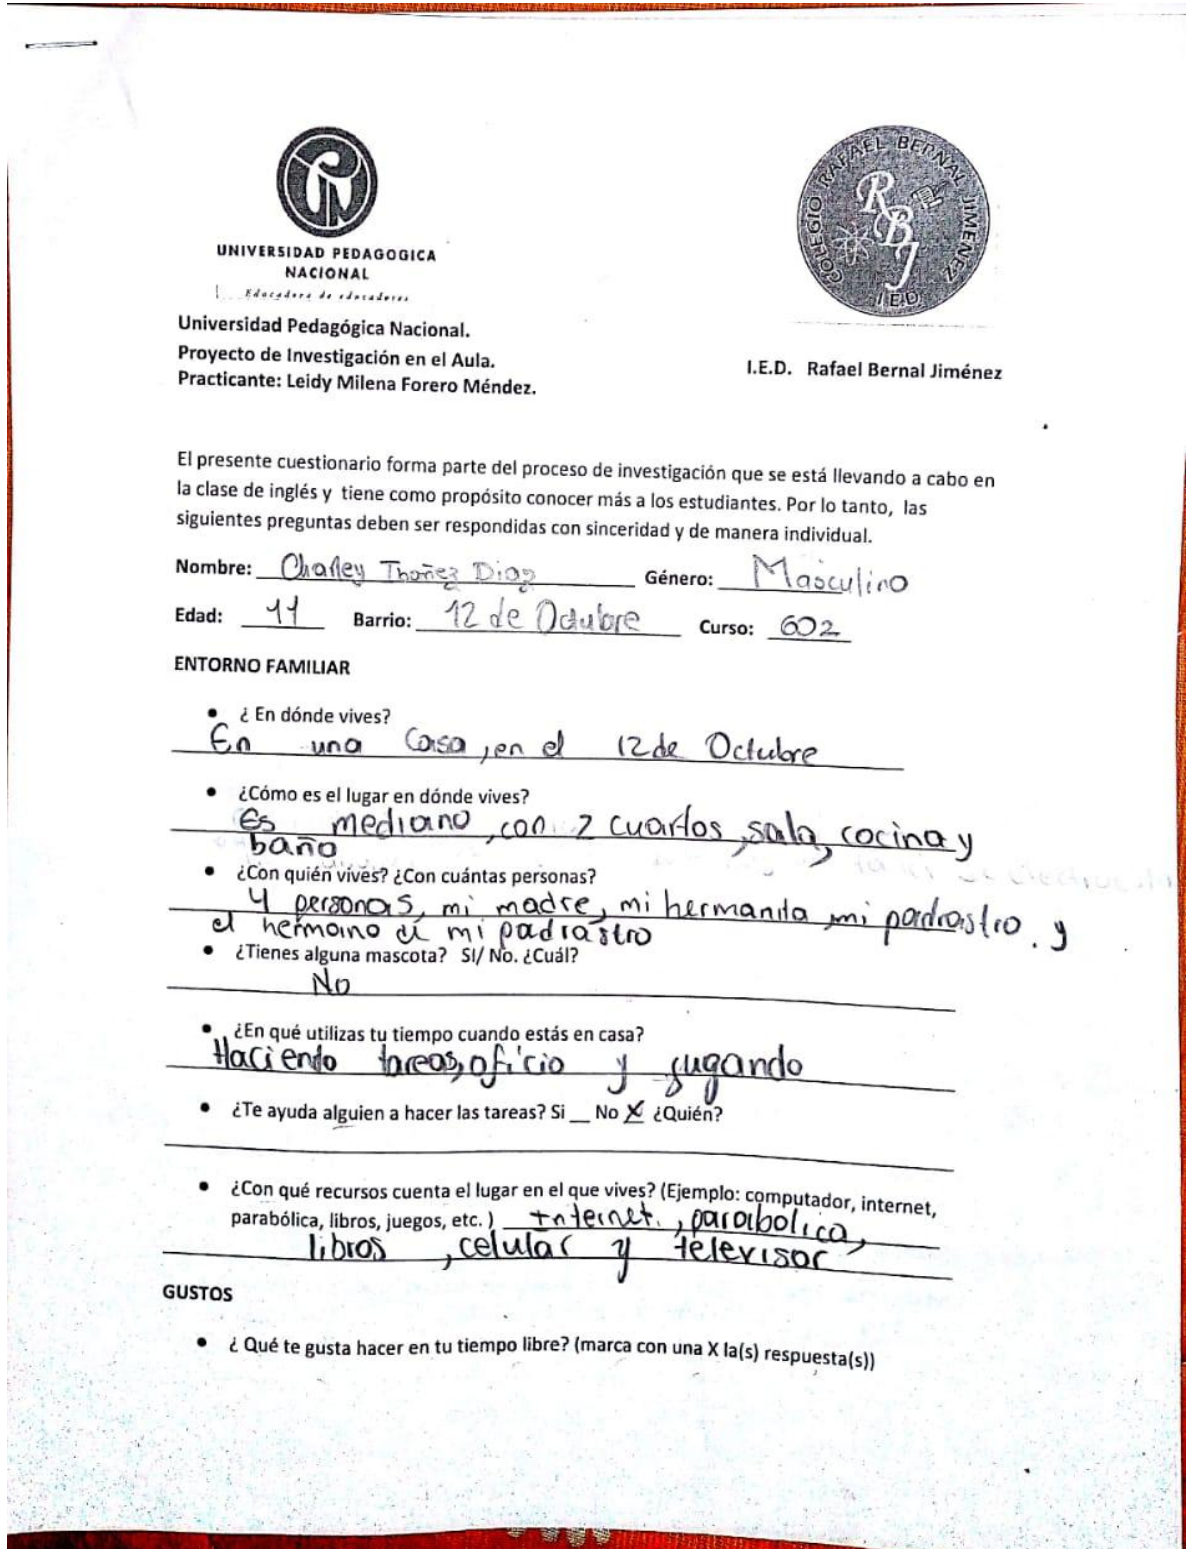 COLEGIO RAFAEL BERNAL JIMÉNEZ
RBJ
I.E.D
UNIVERSIDAD PEDAGOGICA
NACIONAL
Educadora de educadores
Universidad Pedagógica Nacional.
Proyecto de Investigación en el Aula.
Practicante: Leidy Milena Forero Méndez.
I.E.D. Rafael Bernal Jiménez
El presente cuestionario forma parte del proceso de investigación que se está llevando a cabo en
la clase de inglés y tiene como propósito conocer más a los estudiantes. Por lo tanto, las
siguientes preguntas deben ser respondidas con sinceridad y de manera individual.
Nombre: Charley Ibañez Diaz Género: Masculino
Edad: 11 Barrio: 12 de Octubre Curso: 602
ENTORNO FAMILIAR
• ¿ En dónde vives?
En una Casa, en el 12 de Octubre
• ¿Cómo es el lugar en dónde vives?
Es mediano, con 2 cuartos, sala, cocina y
baño
• ¿Con quién vives? ¿Con cuántas personas?
4 personas, mi madre, mi hermanita, mi padrastro. y
el hermano de mi padrastro
• ¿Tienes alguna mascota? SI/ No. ¿Cuál?
No
• ¿En qué utilizas tu tiempo cuando estás en casa?
Haciendo tareas, oficio y jugando
• ¿Te ayuda alguien a hacer las tareas? Si __ No X ¿Quién?
• ¿Con qué recursos cuenta el lugar en el que vives? (Ejemplo: computador, internet,
parabólica, libros, juegos, etc. ) Internet., parabolica,
libros, celular y televisor
GUSTOS
• ¿ Qué te gusta hacer en tu tiempo libre? (marca con una X la(s) respuesta(s))